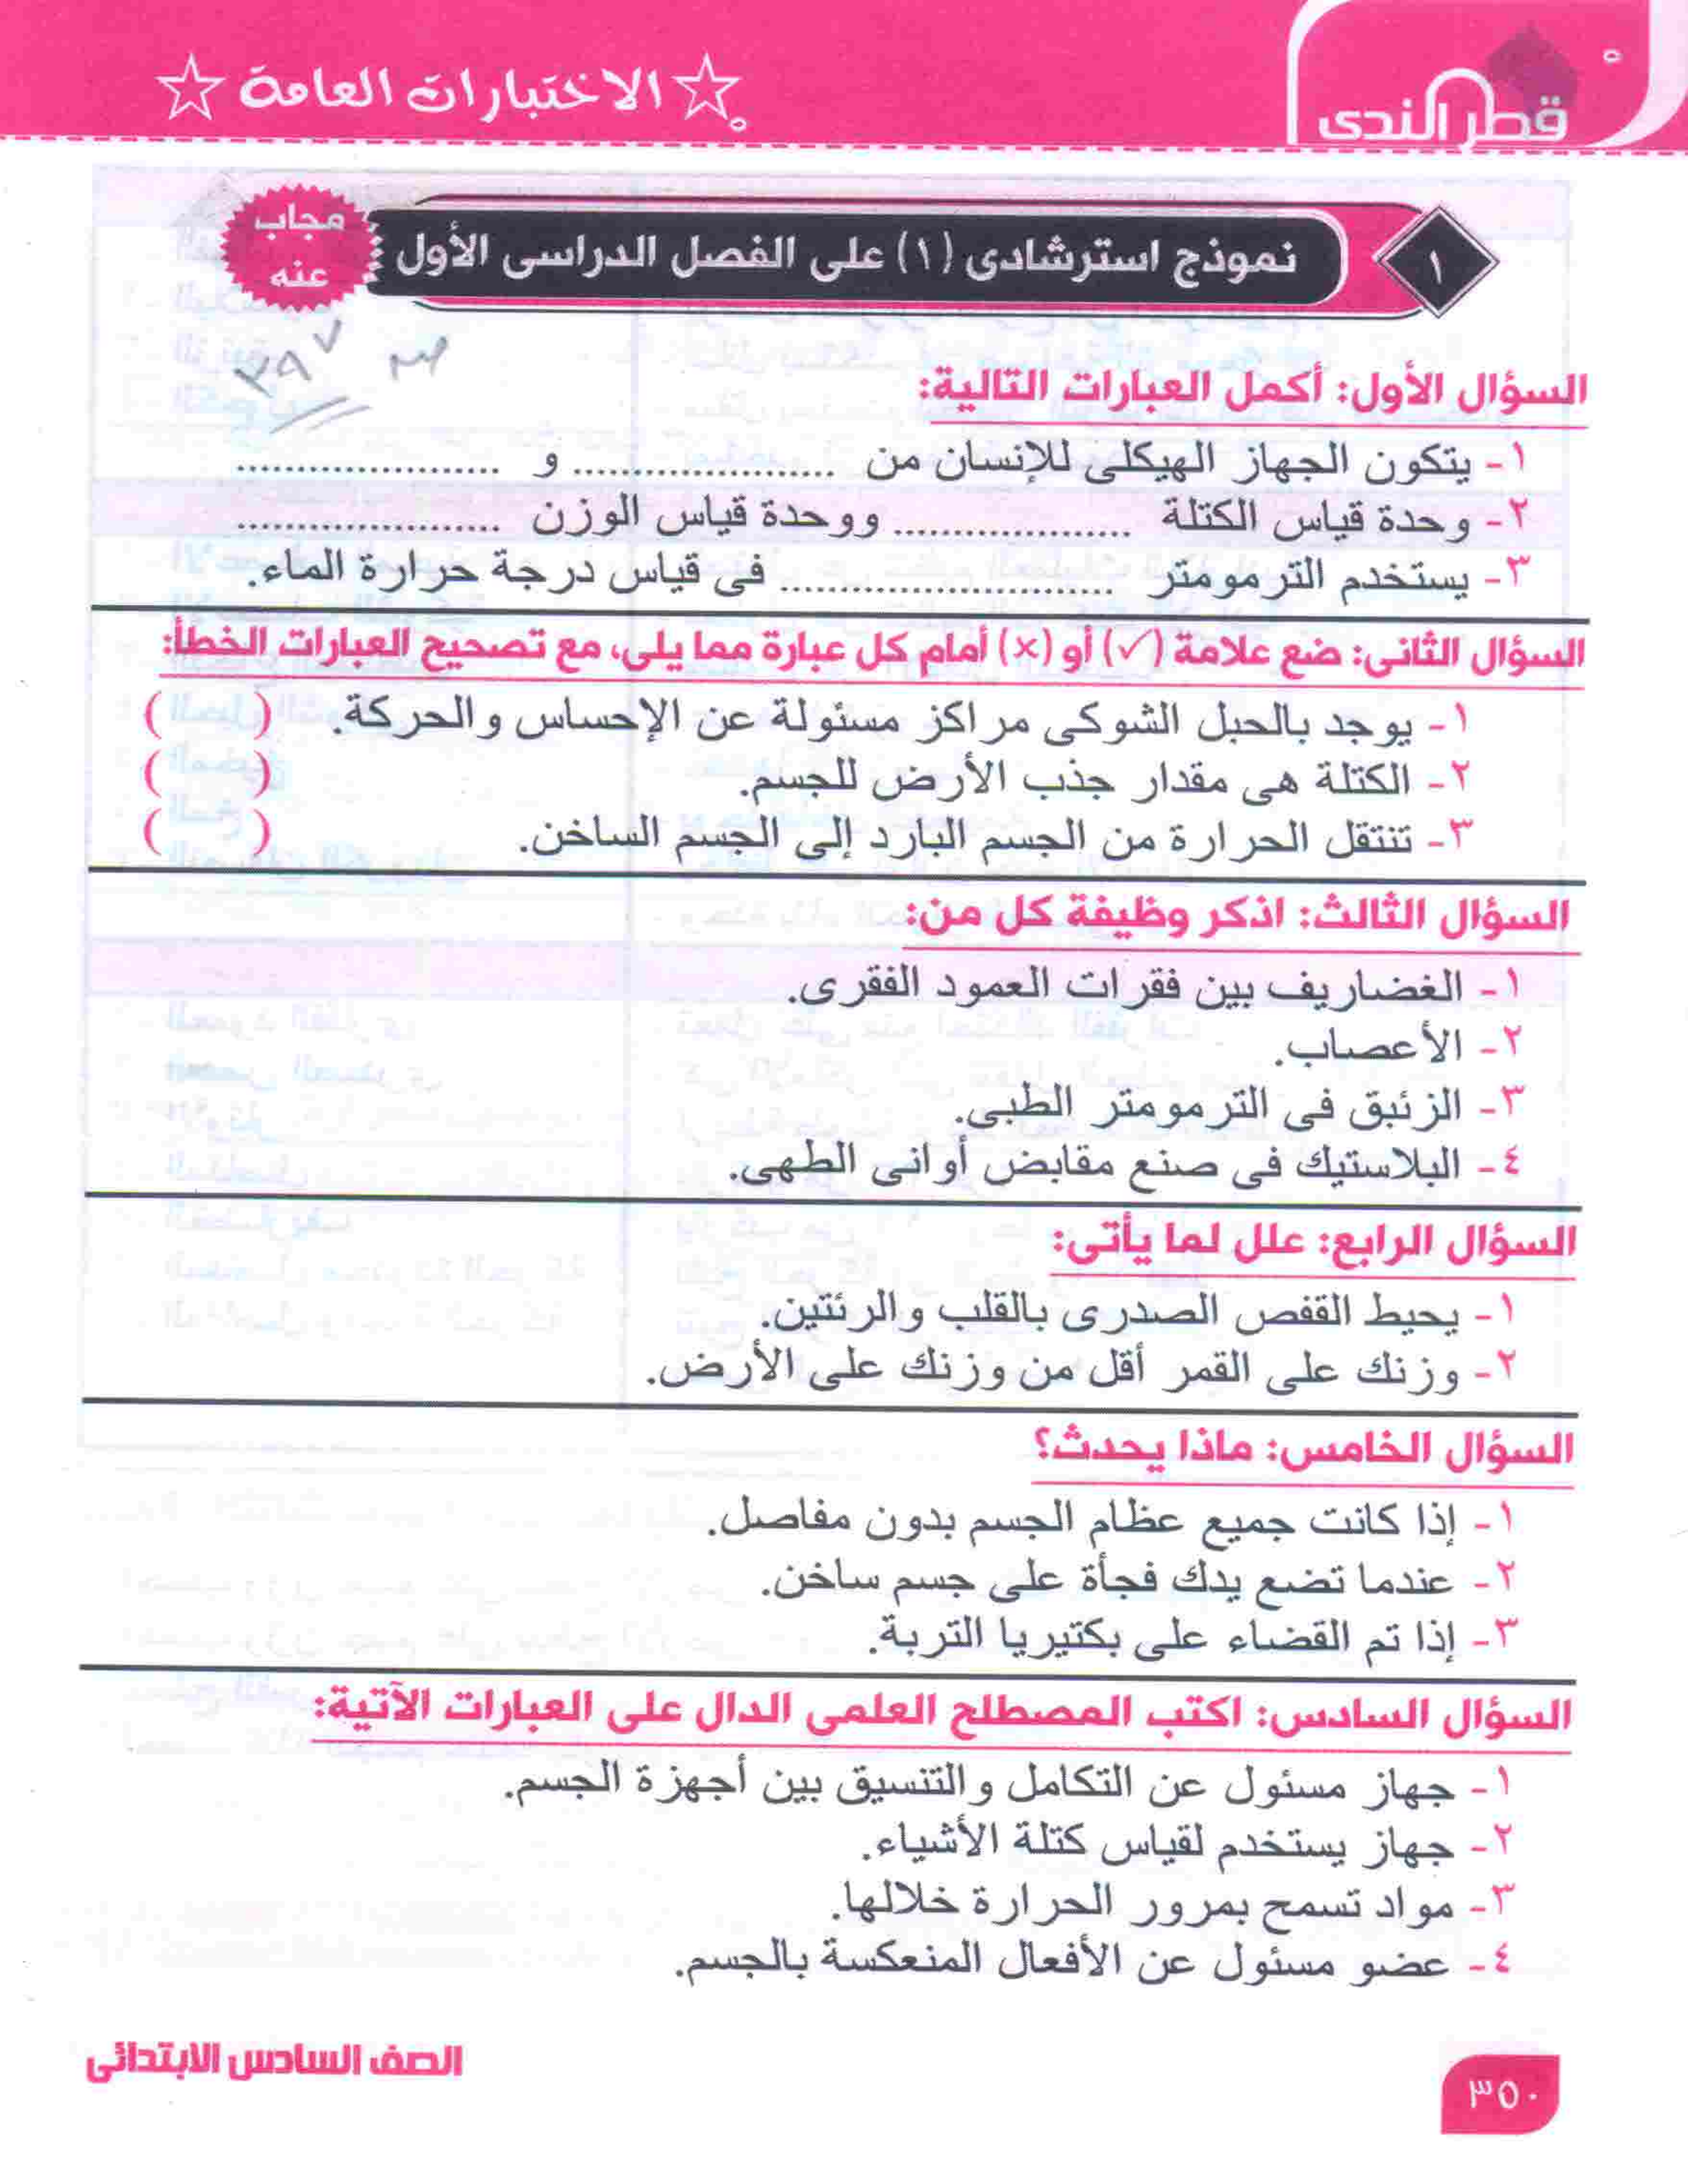 قطر الندى
☆ الاختبارات العامة ☆
١
نموذج استرشادى (١) على الفصل الدراسى الأول
مجاب
عنه
ص ٣٩٧
السؤال الأول: أكمل العبارات التالية:
١- يتكون الجهاز الهيكلى للإنسان من ...................... و ......................
٢- وحدة قياس الكتلة .................... ووحدة قياس الوزن ......................
٣- يستخدم الترمومتر ............................ فى قياس درجة حرارة الماء.
السؤال الثانى: ضع علامة (✓) أو (×) أمام كل عبارة مما يلى، مع تصحيح العبارات الخطأ:
١- يوجد بالحبل الشوكى مراكز مسئولة عن الإحساس والحركة. ( )
٢- الكتلة هى مقدار جذب الأرض للجسم. ( )
٣- تنتقل الحرارة من الجسم البارد إلى الجسم الساخن. ( )
السؤال الثالث: اذكر وظيفة كل من:
١- الغضاريف بين فقرات العمود الفقرى.
٢- الأعصاب.
٣- الزئبق فى الترمومتر الطبى.
٤- البلاستيك فى صنع مقابض أوانى الطهى.
السؤال الرابع: علل لما يأتى:
١- يحيط القفص الصدرى بالقلب والرئتين.
٢- وزنك على القمر أقل من وزنك على الأرض.
السؤال الخامس: ماذا يحدث؟
١- إذا كانت جميع عظام الجسم بدون مفاصل.
٢- عندما تضع يدك فجأة على جسم ساخن.
٣- إذا تم القضاء على بكتيريا التربة.
السؤال السادس: اكتب المصطلح العلمى الدال على العبارات الآتية:
١- جهاز مسئول عن التكامل والتنسيق بين أجهزة الجسم.
٢- جهاز يستخدم لقياس كتلة الأشياء.
٣- مواد تسمح بمرور الحرارة خلالها.
٤- عضو مسئول عن الأفعال المنعكسة بالجسم.
الصف السادس الابتدائى
٣٥٠